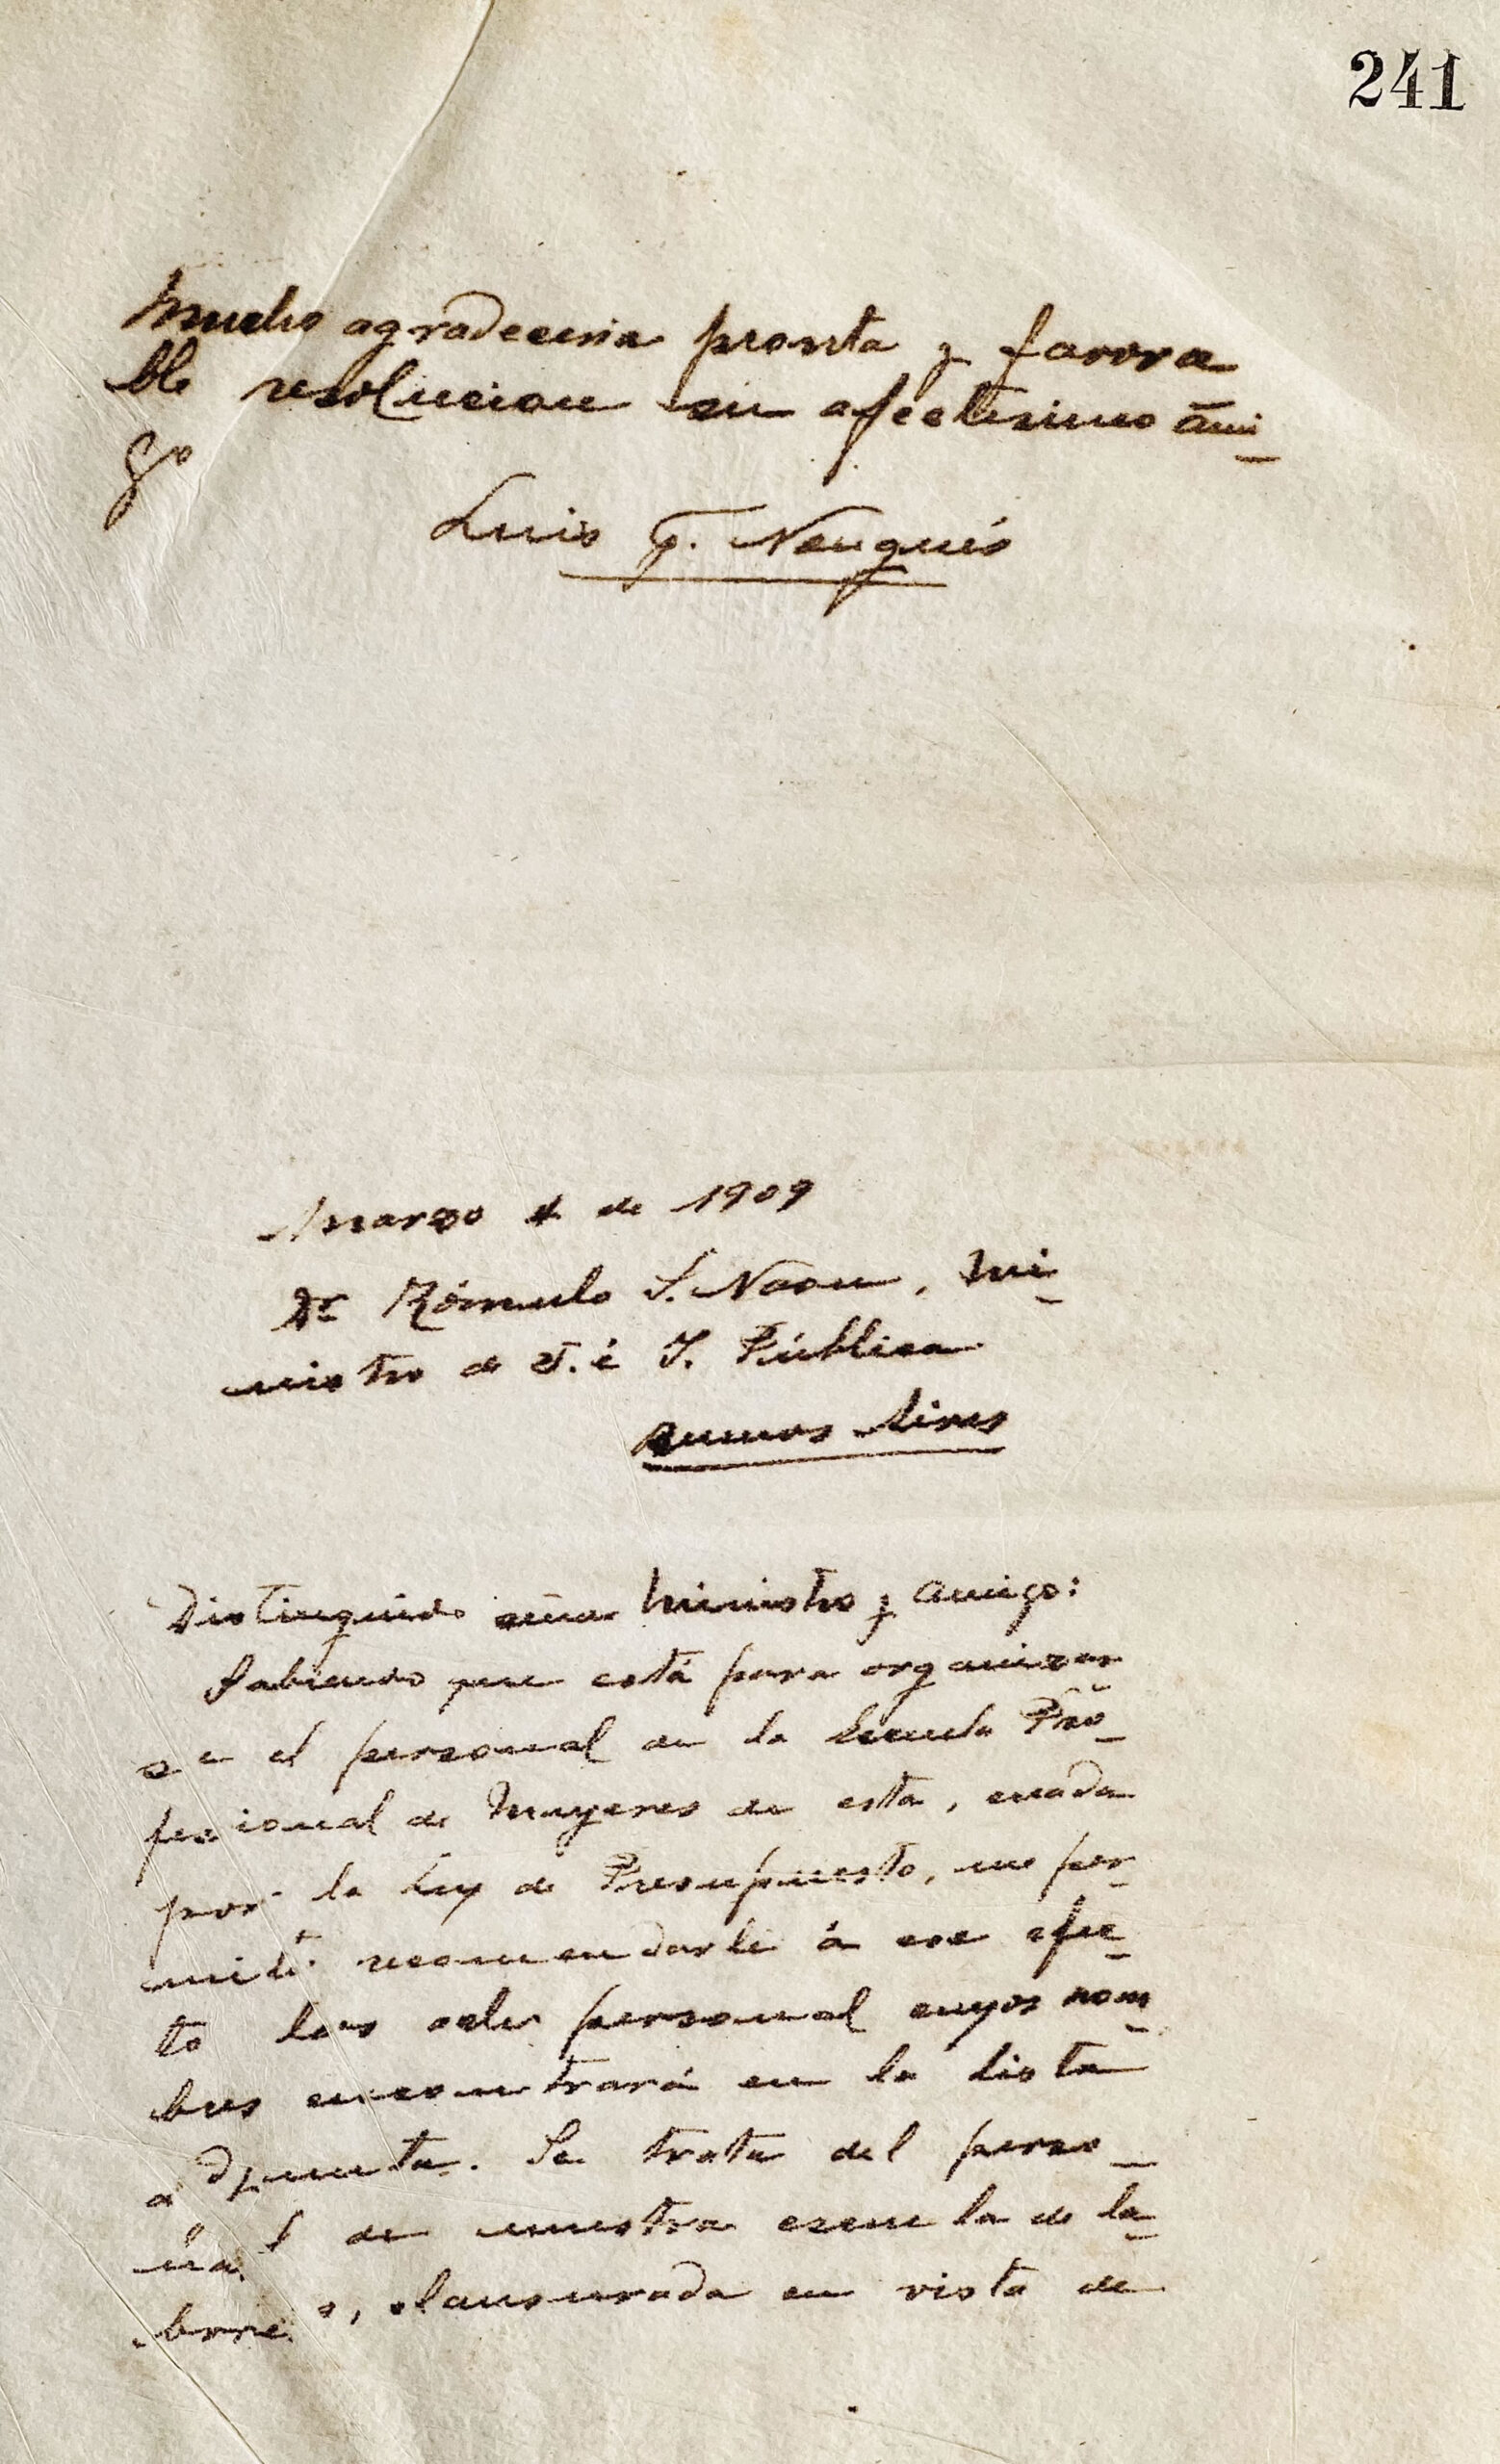 241
Mucho agradeceria pronta y favora
ble resolucion su afectisimo ami_
go
Luis F. Nougués
Marzo 4 de 1909
Dr Rómulo S. Naon, Mi_
nistro de J. é I. Pública
Buenos Aires
Distinguido señor Ministro y amigo:
Sabiendo que está para organizar_
se el personal de la Escuela Pro_
fesional de Mugeres de esta, creada
por la Ley de Presupuesto, me per_
mito recomendarle á ese efec_
to los del personal cuyos nom_
bres encontrará en la lista
adjunta. Se trata del perso_
nal de nuestra escuela de la_
bores, clausurada en vista de